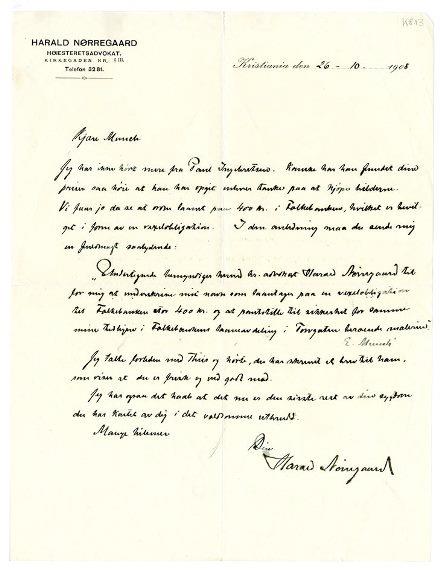 K 813
HARALD NØRREGAARD
HØIESTERETSADVOKAT.
KIRKEGADEN NR.
Telefon 5281.
Kristiania den 26 - 10 - 1908
Kjære Munch
Jeg har ikke hørt mere fra Paul Ingebretsen. Kanske har han fundet dine
priser saa høie at han har opgit enhver tanke paa at kjøpe billederne.
Vi faar jo da se at ordne laanet paa 400 kr. i Folkebanken, hvilket er bevil-
get i form av en vexelobligation. I den anledning maa du sende mig
en fuldmagt saalydende:
"Undertegnede bemyndiger herved hr. advokat Harald Nørregaard til
for mig at underskrive mit navn som laantager paa en vexelobligation
til Folkebanken stor 400 kr. og at pantsætte til sikkerhet for samme
mine i Folkebankens laaneavdeling i Torvgaten beroende malerier."
E. Munch
Jeg talte forleden med Thiis og hørte, du har skrevet et brev til ham,
som viser at du er frisk og ved godt mod.
Jeg har ogsaa det haab at det nu er den sidste rest av din sygdom
du har kastet av dig i det voldsomme utbrud.
Mange hilsener
Din
Harald Nørregaard